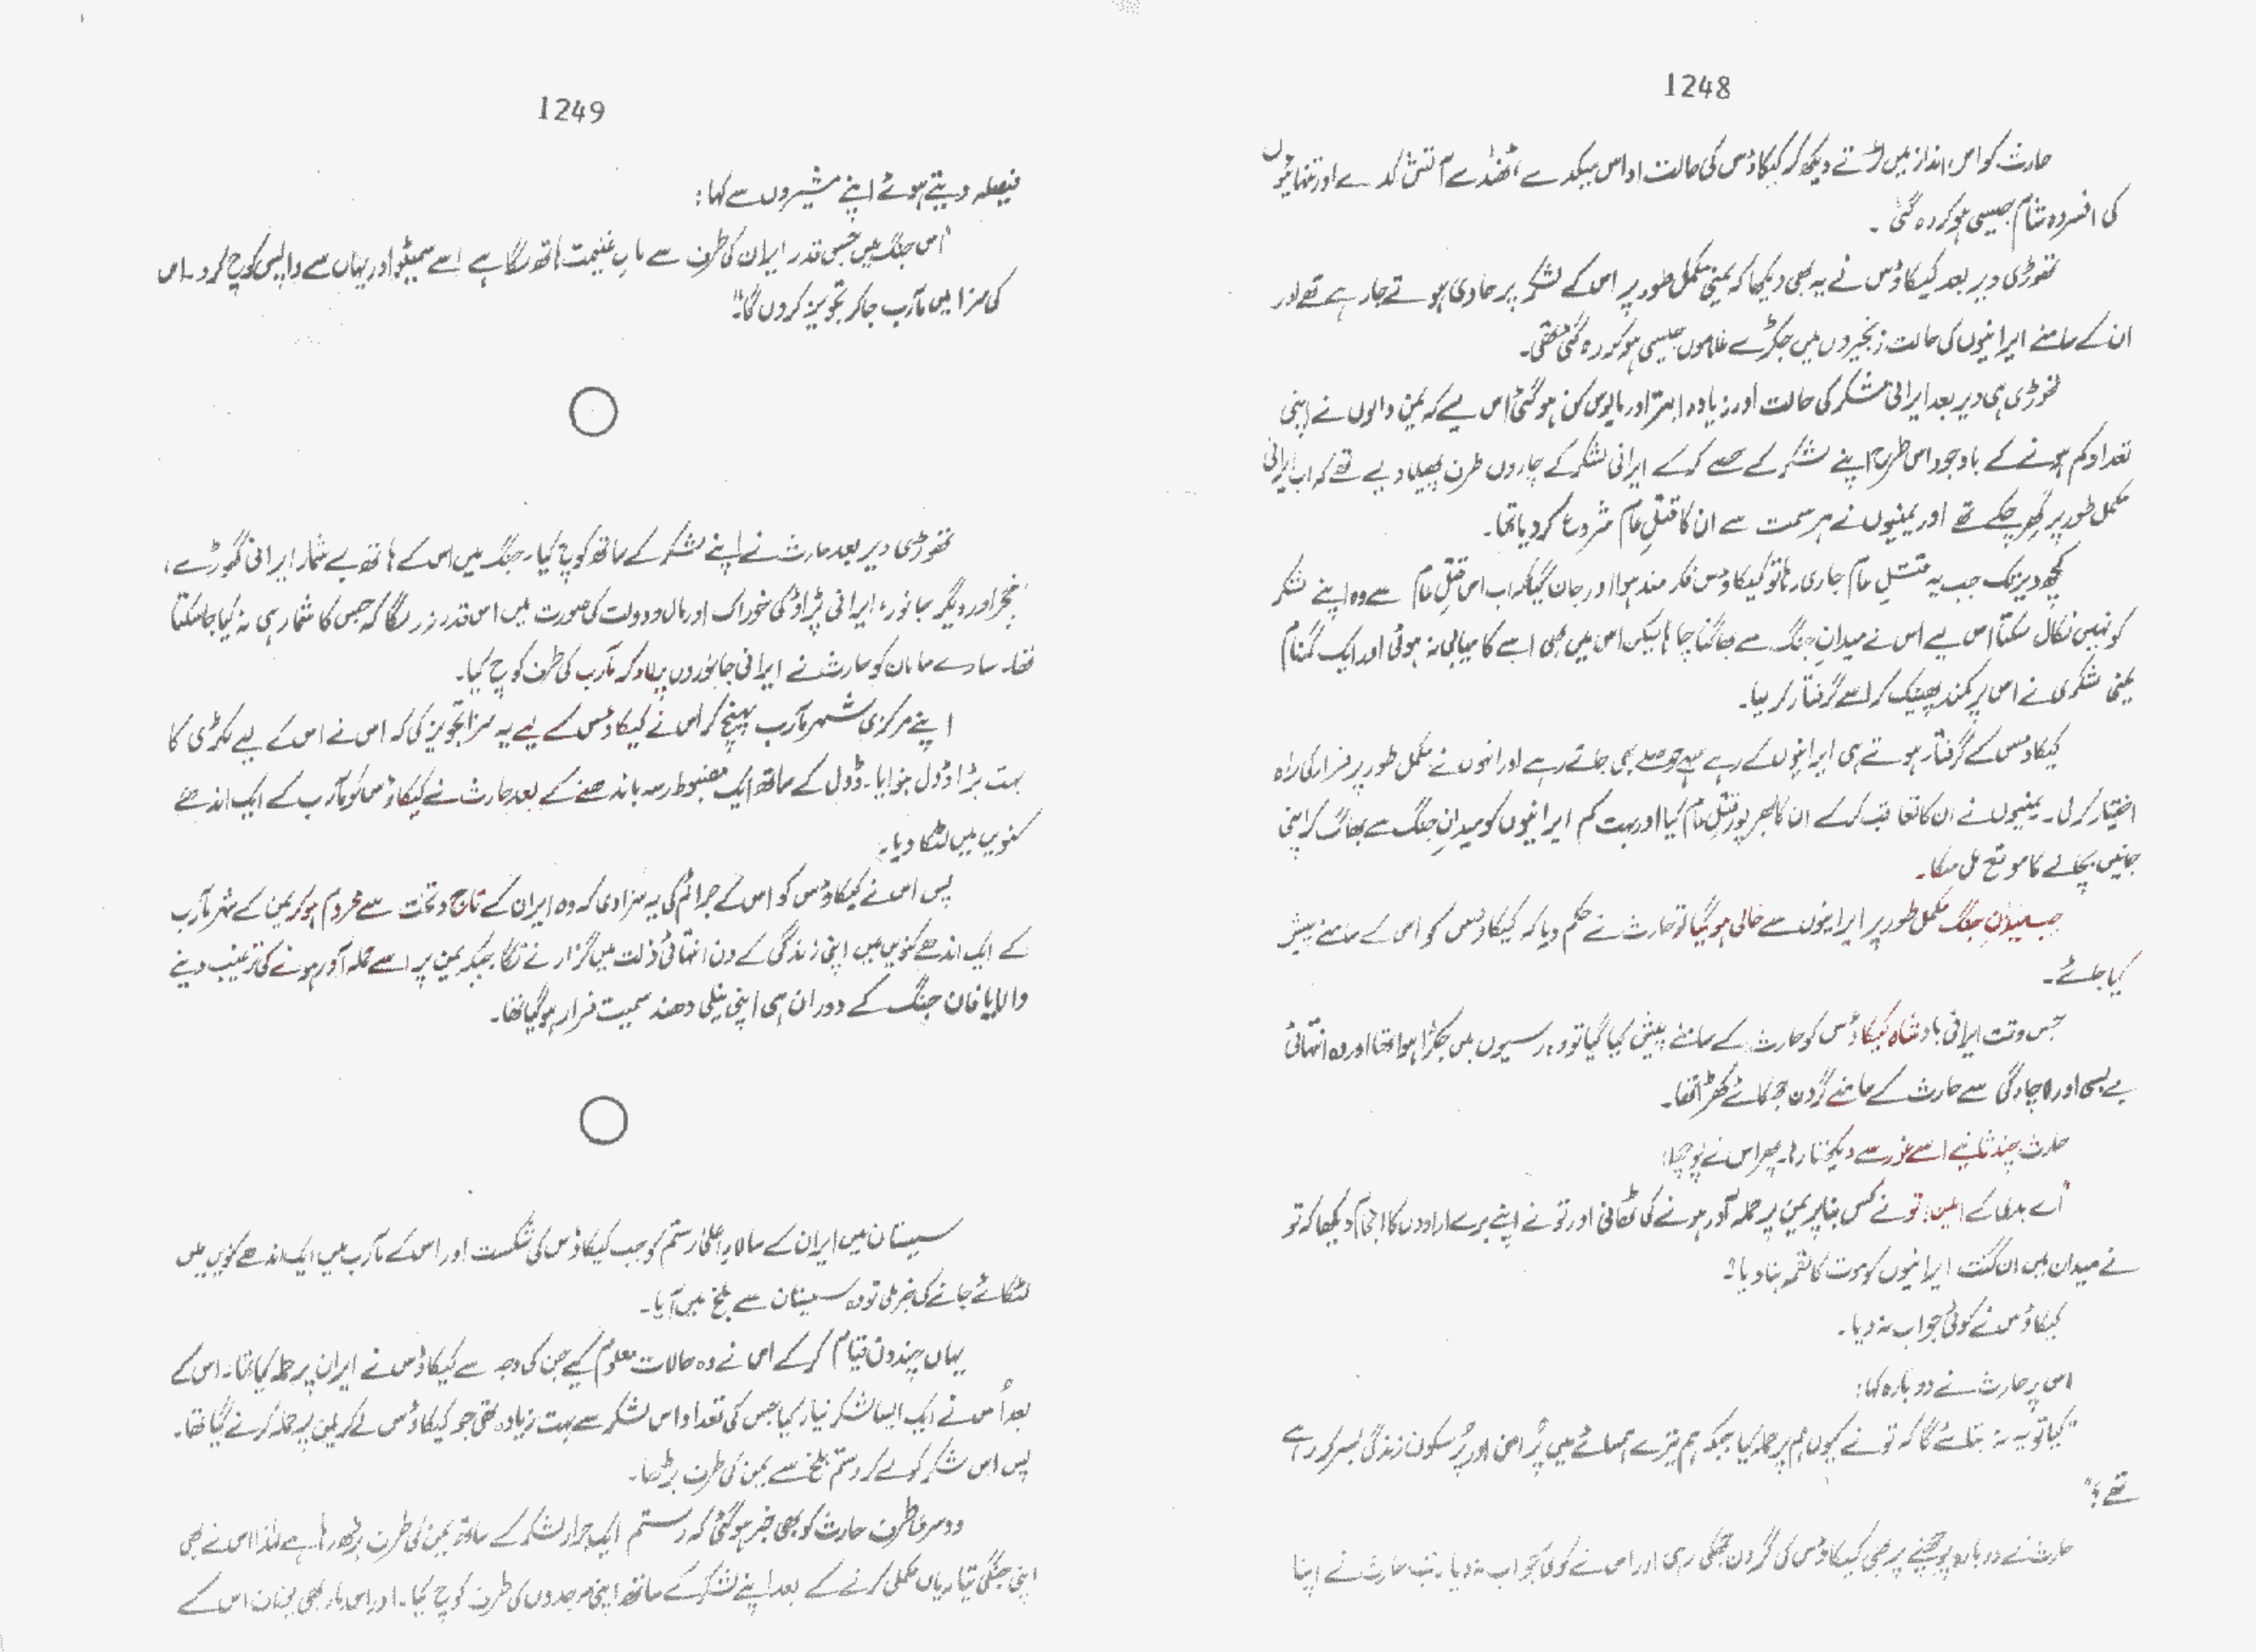 1248
حارث کو اس انداز میں لڑتے دیکھ کر کیکاؤس کی حالت اداس میکدے، ٹھنڈے آتش کدے اور تنہائیوں
کی افسردہ شام جیسی ہو کر رہ گئی۔
تھوڑی دیر بعد کیکاؤس نے یہ بھی دیکھا کہ یمنی مکمل طور پر اس کے لشکر پر حاوی ہوتے جا رہے تھے اور
ان کے سامنے ایرانیوں کی حالت زنجیروں میں جکڑے غلاموں جیسی ہو کر رہ گئی تھی۔
تھوڑی ہی دیر بعد ایرانی لشکر کی حالت اور زیادہ ابتر اور مایوس کن ہو گئی اس لیے کہ یمن والوں نے اپنی
تعداد کم ہونے کے باوجود اس طرح اپنے لشکر کے حصے کر کے ایرانی لشکر کے چاروں طرف پھیلا دیے تھے کہ اب ایرانی
مکمل طور پر گھر چکے تھے اور یمنیوں نے ہر سمت سے ان کا قتلِ عام شروع کر دیا تھا۔
کچھ دیر تک جب یہ قتلِ عام جاری رہا تو کیکاؤس فکر مند ہوا اور جان گیا کہ اب اس قتلِ عام سے وہ اپنے لشکر
کو نہیں نکال سکتا اس لیے اس نے میدانِ جنگ سے بھاگنا چاہا لیکن اس میں بھی اسے کامیابی نہ ہوئی اور ایک گمنام
یمنی لشکری نے اس پر کمند پھینک کر اسے گرفتار کر لیا۔
کیکاؤس کے گرفتار ہوتے ہی ایرانیوں کے رہے سہے حوصلے بھی جاتے رہے اور انہوں نے مکمل طور پر فرار کی راہ
اختیار کر لی۔ یمنیوں نے ان کا تعاقب کر کے ان کا بھرپور قتلِ عام کیا اور بہت کم ایرانیوں کو میدانِ جنگ سے بھاگ کر اپنی
جانیں بچانے کا موقع مل سکا۔
جب میدانِ جنگ مکمل طور پر ایرانیوں سے خالی ہو گیا تو حارث نے حکم دیا کہ کیکاؤس کو اس کے سامنے پیش
کیا جائے۔
جس وقت ایرانی بادشاہ کیکاؤس کو حارث کے سامنے پیش کیا گیا تو وہ رسیوں میں جکڑا ہوا تھا اور وہ انتہائی
بے بسی اور لاچارگی سے حارث کے سامنے گردن جھکائے کھڑا تھا۔
حارث چند ثانیے اسے غور سے دیکھتا رہا۔ پھر اس نے پوچھا:
"اے بدی کے امین! تو نے کس بنا پر یمن پر حملہ آور ہونے کی ٹھانی اور تو نے اپنے برے ارادوں کا انجام دیکھا کہ تو
نے میدان میں ان گنت ایرانیوں کو موت کا لقمہ بنا دیا؟"
کیکاؤس نے کوئی جواب نہ دیا۔
اس پر حارث نے دوبارہ کہا:
"کیا تو یہ نہ بتائے گا کہ تو نے کیوں ہم پر حملہ کیا جبکہ ہم تیرے ہمسائے میں پُر امن اور پُر سکون زندگی بسر کر رہے
تھے؟"
حارث نے دوبارہ پوچھنے پر بھی کیکاؤس کی گردن جھکی رہی اور اس نے کوئی جواب نہ دیا۔ تب حارث نے اپنا
1249
فیصلہ دیتے ہوئے اپنے مشیروں سے کہا:
"اس جنگ میں جس قدر ایران کی طرف سے مالِ غنیمت ہاتھ لگا ہے اسے سمیٹو اور یہاں سے واپس کوچ کرو۔ اس
کی سزا میں مآرب جا کر تجویز کروں گا۔"
تھوڑی دیر بعد حارث نے اپنے لشکر کے ساتھ کوچ کیا۔ جنگ میں اس کے ہاتھ بے شمار ایرانی گھوڑے،
خچر اور دیگر جانور، ایرانی پڑاؤ کی خوراک اور مال و دولت کی صورت میں اس قدر زر لگا کہ جس کا شمار ہی نہ کیا جا سکتا
تھا۔ سارے سامان کو حارث نے ایرانی جانوروں پر لاد کر مآرب کی طرف کوچ کیا۔
اپنے مرکزی شہر مآرب پہنچ کر اس نے کیکاؤس کے لیے یہ سزا تجویز کی کہ اس نے اس کے لیے لکڑی کا
بہت بڑا ڈول بنوایا۔ ڈول کے ساتھ ایک مضبوط رسہ باندھنے کے بعد حارث نے کیکاؤس کو مآرب کے ایک اندھے
کنویں میں لٹکا دیا۔
پس اس نے کیکاؤس کو اس کے جرائم کی یہ سزا دی کہ وہ ایران کے تاج و تخت سے محروم ہو کر یمن کے شہر مآرب
کے ایک اندھے کنویں میں اپنی زندگی کے دن انتہائی ذلت میں گزارنے لگا جبکہ یمن پر اسے حملہ آور ہونے کی ترغیب دینے
والا یافان جنگ کے دوران ہی اپنی نیلی دھند سمیت فرار ہو گیا تھا۔
سیستان میں ایران کے سالارِ اعلیٰ رستم کو جب کیکاؤس کی شکست اور اس کے مآرب میں ایک اندھے کنویں میں
لٹکائے جانے کی خبر ملی تو وہ سیستان سے بلخ میں آیا۔
یہاں چند دن قیام کر کے اس نے وہ حالات معلوم کیے جن کی وجہ سے کیکاؤس نے ایران پر حملہ کیا تھا۔ اس کے
بعد اُس نے ایک ایسا لشکر تیار کیا جس کی تعداد اس لشکر سے بہت زیادہ تھی جو کیکاؤس لے کر یمن پر حملہ کرنے گیا تھا۔
پس اس لشکر کو لے کر رستم بلخ سے یمن کی طرف بڑھا۔
دوسری طرف حارث کو بھی خبر ہو گئی کہ رستم ایک جرار لشکر کے ساتھ یمن کی طرف بڑھ رہا ہے لہٰذا اس نے بھی
اپنی جنگی تیاریاں مکمل کرنے کے بعد اپنے لشکر کے ساتھ اپنی سرحدوں کی طرف کوچ کیا۔ اور اس بار بھی یوناف اس کے